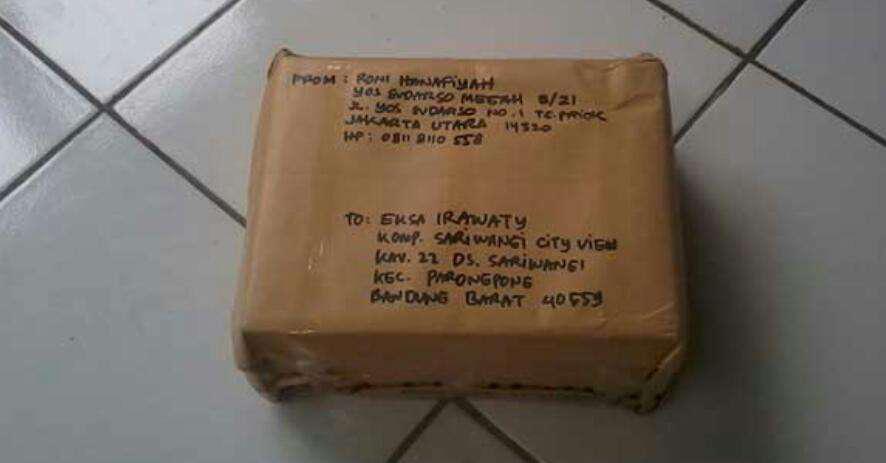 FROM : RONI HANAFIYAH
YOS SUDARSO MEGAH B/21
JL. YOS SUDARSO NO. 1 TG. PRIOK
JAKARTA UTARA 14320
HP : 0811 8110 558
TO : EKSA IRAWATY
KOMP. SARIWANGI CITY VIEW
KAV. 22 DS. SARIWANGI
KEC. PARONGPONG
BANDUNG BARAT 40559